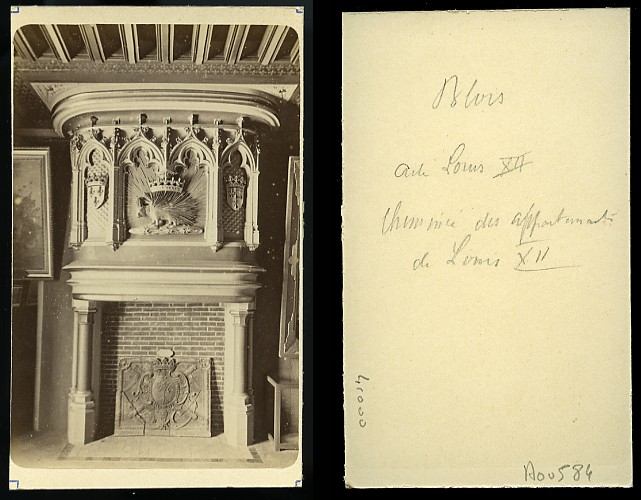 Blois
aile Louis XII
Cheminée des appartements
de Louis XII
41000
Aou584